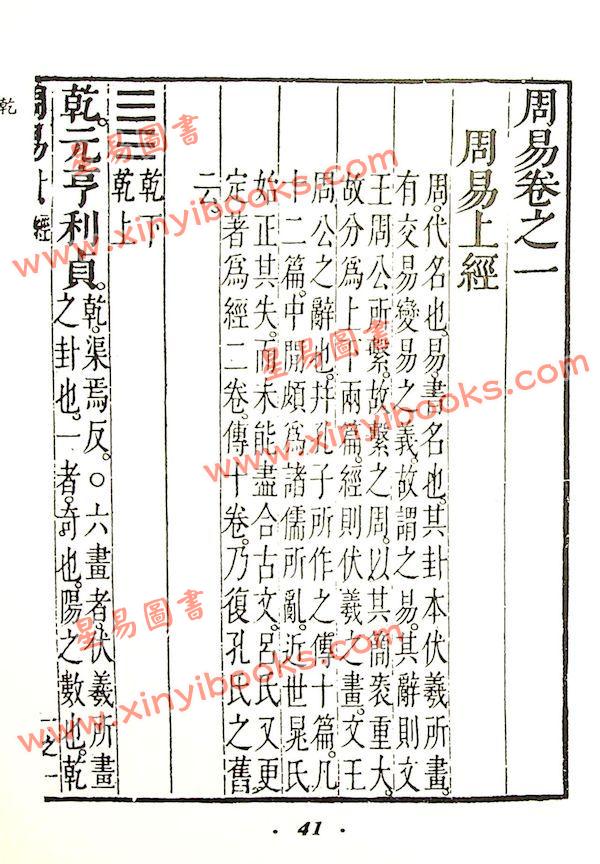 周易卷之一
周易上經
周代名也。易書名也。其卦本伏羲所畫。
有交易變易之義。故謂之易。其辭則文
王周公所繫。故繫之周。以其簡袠重大。
故分為上下兩篇。經則伏羲之畫。文王
周公之辭也。并孔子所作之傳十篇。凡
十二篇。中間頗為諸儒所亂。近世晁氏
始正其失。而未能盡合古文。呂氏又更
定著為經二卷。傳十卷。乃復孔氏之舊
云。
乾下
乾上
乾。元亨利貞。乾。渠焉反。○六畫者。伏羲所畫
之卦也。一者。奇也。陽之數也。乾
經
一之一
乾
· 41 ·
星易圖書
www.xinyibooks.com
星易圖書
www.xinyibooks.com
星易圖書
www.xinyibooks.com